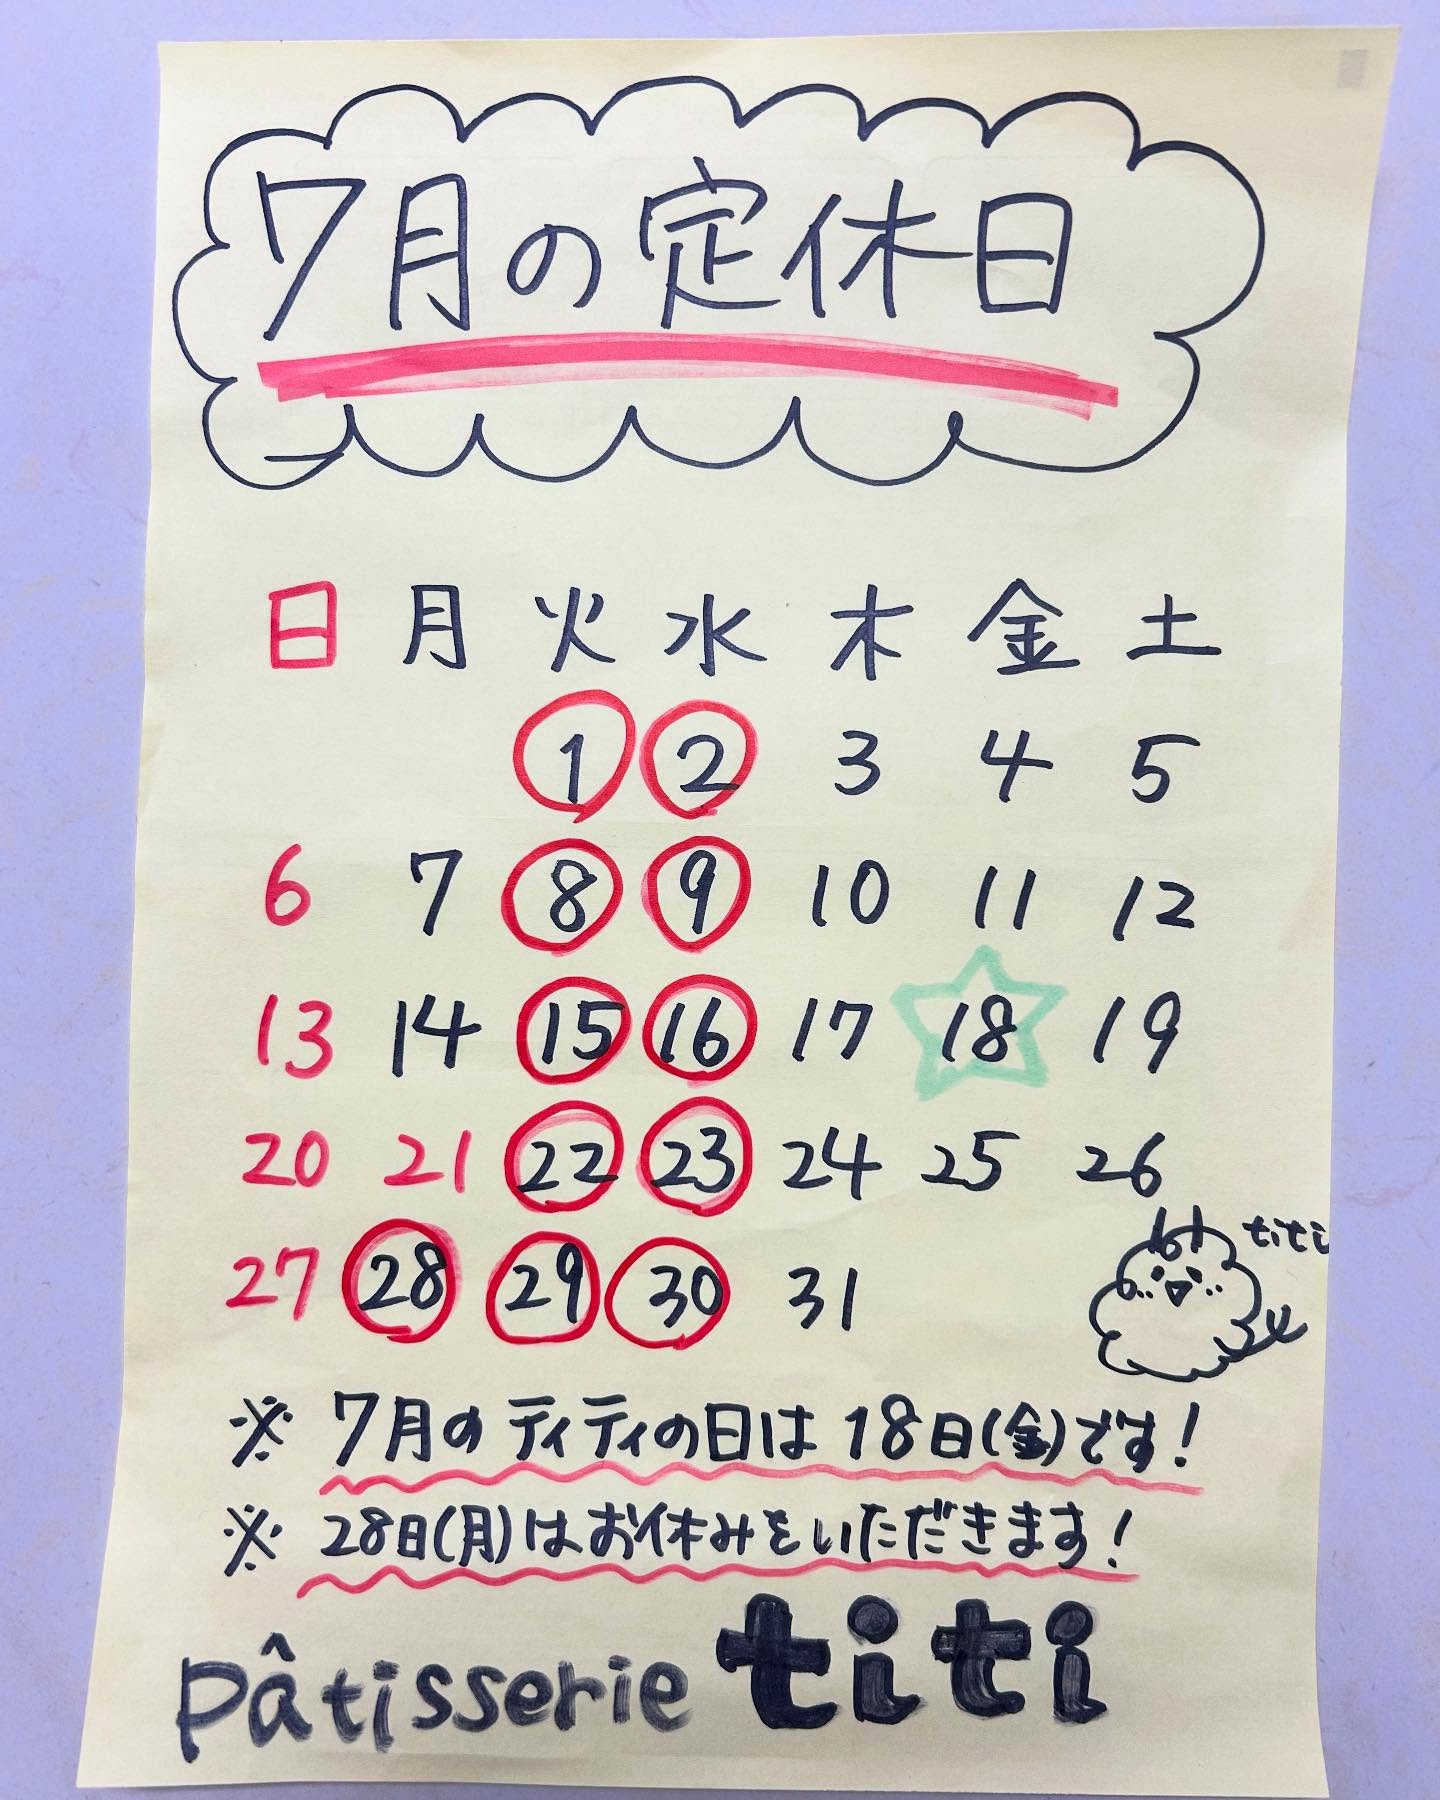 7月の定休日
日 月 火 水 木 金 土
1 2 3 4 5
6 7 8 9 10 11 12
13 14 15 16 17 18 19
20 21 22 23 24 25 26
titi
27 28 29 30 31
※ 7月のティティの日は18日(金)です!
※ 28日(月)はお休みをいただきます!
pâtisserie titi